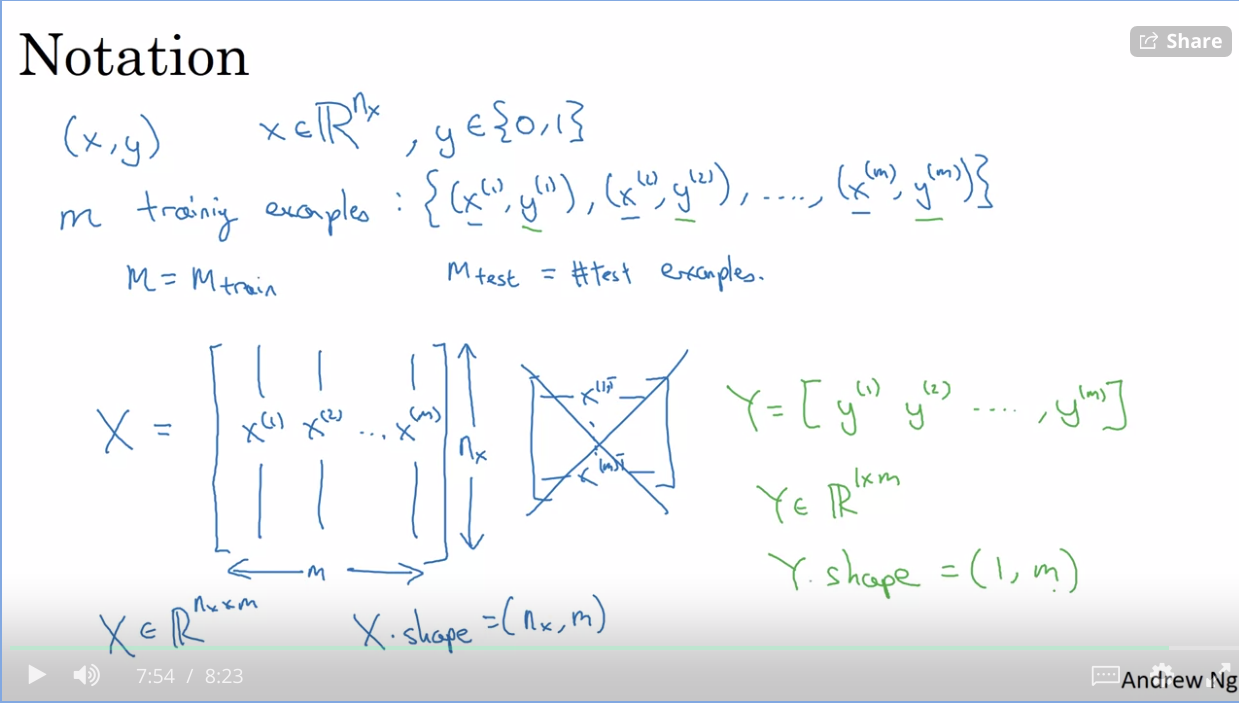 Notation
Share
(x,y) x∈ℝ^{n_x}, y∈{0,1}
m trainig examples : {(x^{(1)}, y^{(1)}), (x^{(2)}, y^{(2)}), ...., (x^{(m)}, y^{(m)})}
M = M_{train} M_{test} = #test examples.
X = [ x^{(1)} x^{(2)} ... x^{(m)} ] n_x
m
x^{(1)T}
x^{(m)T}
Y = [ y^{(1)} y^{(2)} ...., y^{(m)} ]
Y∈ ℝ^{1×m}
Y.shape = (1, m)
X ∈ ℝ^{n_x×m} X.shape = (n_x, m)
7:54 / 8:23
Andrew Ng